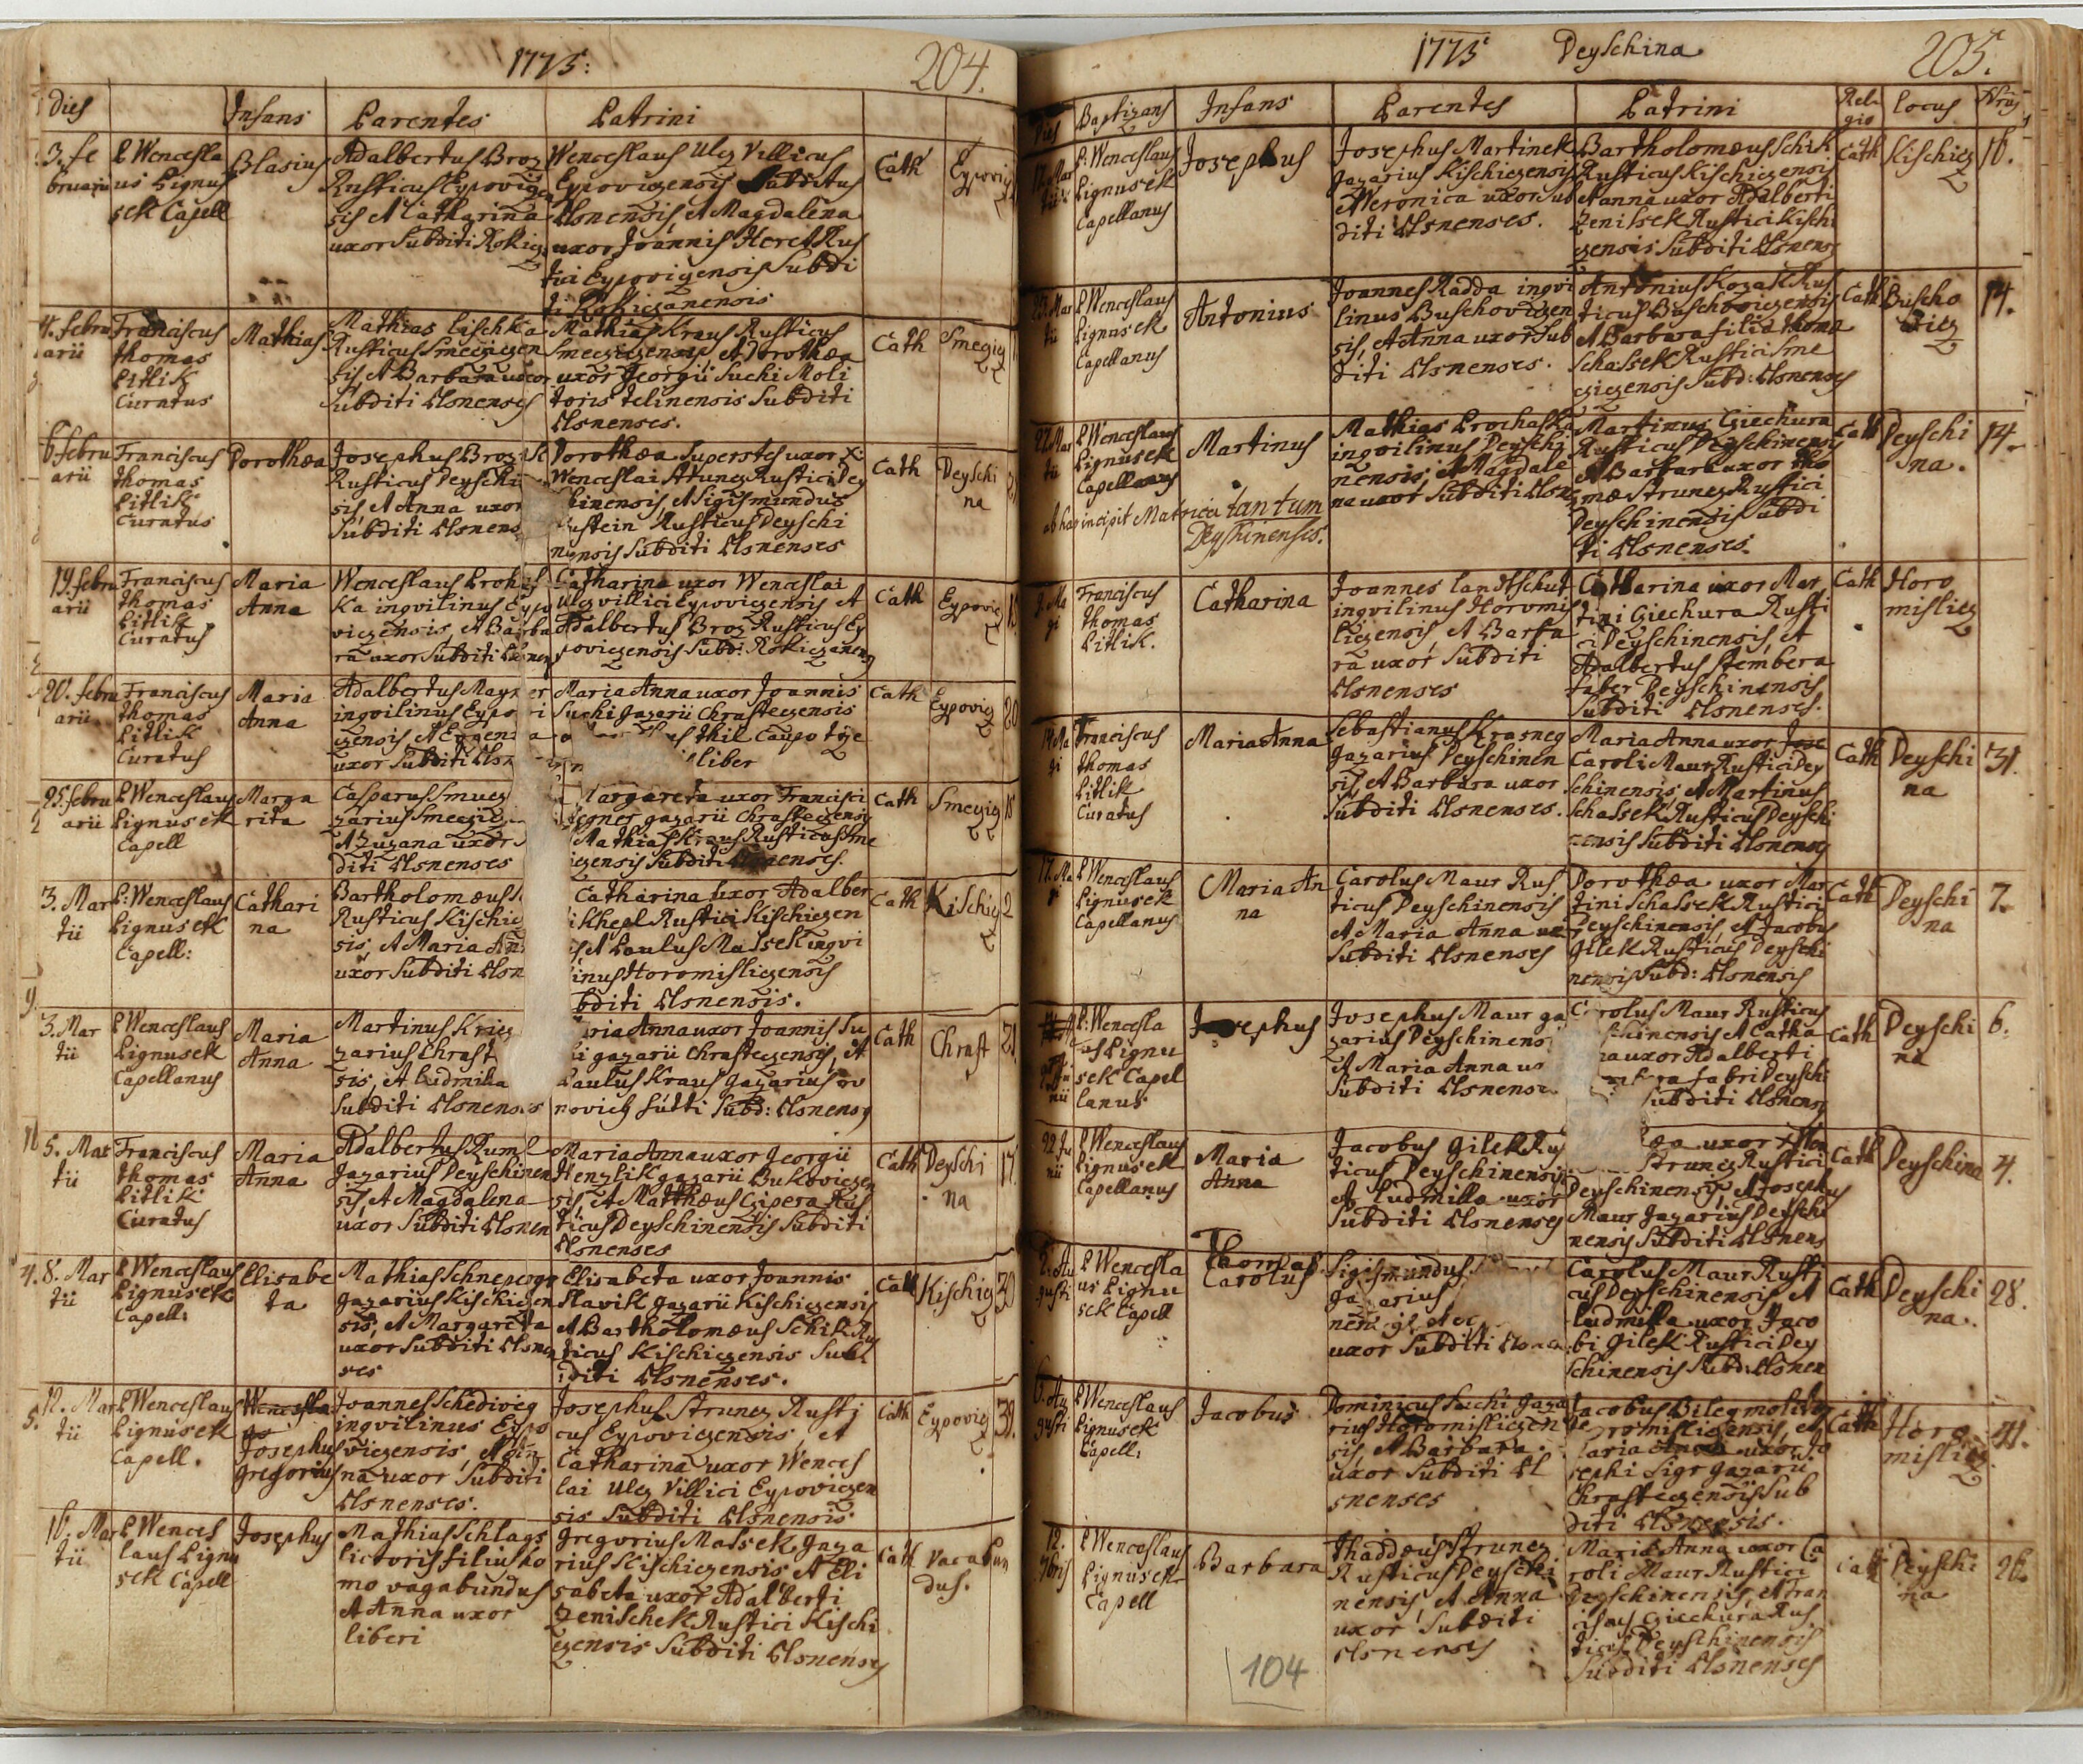 1775:
204.
Dies
Infans
Parentes
Patrini
3. fe
bruarii
P Wencesla
us Lignus
sek Capell
Blasius
Adalbertus Broz
Rusticus Eypovicen
sis, A Catharina
uxor Subditi Rokicz
Wenceslaus Ulcz Villicus
Eypovicensis Subditus
Plsnensis, A Magdalena
uxor Joannis Heret Rus
tici Eypovicensis Subdi
ti Rokiczanensis
Cath
Eypovicz
4. febru
arii
Franciscus
Thomas
Pitlik
Curatus
Mathias
Mathias Lischka
Rusticus Smeczicen
sis, A Barbara uxor
Subditi Plsnenses
Mathias Kraus Rusticus
Smeczicensis, A Dorothæa
uxor Georgii Suchi Moli
toris telinensis Subditi
Plsnenses.
Cath
Smeczicz
6. febru
arii
Franciscus
Thomas
Pitlik
Curatus
Dorothæa
Josephus Brozek
Rusticus Deyschi
sis, A Anna uxor
Subditi Plsnens
Dorothæa Superstes uxor
Wenceslai Strunez Rustici Dey
inensis, A Sigismundus
ustein Rusticus Deyschi
nensis Subditi Plsnenses
Cath
Deyschi
na
19. febru
arii
Franciscus
Thomas
Pitlik
Curatus
Maria
Anna
Wenceslaus Prohas
ka inqvilinus Eypo
viczensis, A Barba
ra uxor Subditi Plsnens
Catharina uxor Wenceslai
Ulcz villici Eypoviczensis A
Adalbertus Broz Rusticus Ey
poviczensis Subd: Rokiczanens
Cath
Eypovicz
20. febru
arii
Franciscus
Thomas
Pitlik
Curatus
Maria
Anna
Adalbertus Mayer
inqvilinus Eypo
czensis A
uxor Subditi Plsn
Maria Anna uxor Joannis
Suchi gazarii Chrasteczensis
liber
Cath
Eypovicz
20
25. febru
arii
P Wenceslaus
Lignusek
Capell
Marga
rita
Casparus Smucz
zarius Smeczic
A Zuzana uxor
diti Plsnenses
Margareta uxor Francisci
egner gazarii Chrasteczensis
Mathias Kraus Rusticus Sme
iczensis Subditi Plsnenses.
Cath
Smeczicz
18
3. Mar
tii
P: Wenceslaus
Lignusek
Capell:
Cathari
na
Bartholomæus S
Rusticus Kischic
sis, A Maria An
uxor Subditi Plsn
Catharina uxor Adalber
ikhegl Rustici Kischiczen
A Paulus Matsek inqvi
inus Horomisliczensis
bditi Plsnensis.
Cath
Kischicz
2
3. Mar
tii
P Wenceslaus
Lignusek
Capellanus
Maria
Anna
Martinus Kriez
zarius Chrast
sis, A Ludmila
Subditi Plsnenses
ria Anna uxor Joannis Su
i gazarii Chrasteczensis, A
Paulus Kraus gazarius
novicz Subd: Plsnens
Cath
Chrast
21.
5. Mar
tii
Franciscus
Thomas
Pitlik
Curatus
Maria
Anna
Adalbertus Kuml
Gazarius Deyschinen
sis, A Magdalena
uxor Subditi Plsnen
Maria Anna uxor Georgii
Henzlik gazarii Bukoviczen
sis, A Matthæus Czipera Rus
ticus Deyschinensis Subditi
Plsnenses
Cath
Deyschi
na
17.
8. Mar
tii
P Wenceslaus
Lignusek
Capell:
Elisabe
ta
Mathias Schneperge
gazarius Kischiczen
sis, A Margareta
uxor Subditi Plsnen
ses
Elisabeta uxor Joannis
Slavik gazarii Kischiczensis
A Bartholomæus Schik Ru
sticus Kischiczensis Sub
diti Plsnenses.
Cath
Kischicz
30
12. Mar
tii
P Wenceslaus
Lignusek
Capell.
Wencesla
us
Josephus
Gregorius
Joannes Schediweg
inqvilinus Eypo
viczensis, A An
na uxor Subditi
Plsnenses.
Josephus Strunez Rusti
cus Eypoviczensis et
Catharina uxor Wences
lai Ulcz Villici Eypoviczen
sis Subditi Plsnensis
Cath
Eypovicz
39.
16. Mar
tii
P Wences
laus Lignu
sek Capell
Josephus
Mathias Schlags
lictoris filius ho
mo vagabundus
A Anna uxor
liberi
Gregorius Matsek Gaza
rius Kischiczensis A Eli
sabeta uxor Adalberti
Zenischek Rustici Kischi
czensis Subditi Plsnenses
Cath
vacabun
dus.
1775
Deyschina
205.
Dies
Baptizans
Infans
Parentes
Patrini
Reli
gio
Locus
Nrus
17. Mar
tii
P: Wenceslaus
Lignusek
Capellanus
Josephus
Josephus Martinek
gazarius Kischiczensis
A Veronica uxor Sub
diti Plsnenses.
Bartholomæus Schik
Rusticus Kischiczensis
A anna uxor Adalberti
Zenitsek Rustici Kischi
czensis Subditi Plsnens
Cath
Kischicz
16.
P Wenceslaus
Lignusek
Capellanus
Antonius
Joannes Radda inqvi
linus Buschovicen
sis, A Anna uxor Sub
diti Plsnenses.
Antonius Kozak Rus
ticus Buschoviczensis
A Barbara filia Thoma
Schassek Rustici Sme
cziczensis Subd: Plsnenses
Cath
Buscho
vicz
14.
22. Mar
tii
P Wenceslaus
Lignusek
Capellanus
Martinus
Mathias Prochaska
inqvilinus Deyschi
nensis, A Magdale
na uxor, Subditi Plsne
Martinus Giechura
Rusticus Deyschinensis
A Barbara uxor Tho
mæ Strunez Rustici
Deyschinensis Subdi
ti Plsnenses.
Cath
Deyschi
na.
14.
ab hac incipit Matrica tantum
Deyschinensis.
7. Ma
gi
Franciscus
Thomas
Pitlik.
Catharina
Joannes Landschut
inqvilinus Horomis
liczensis, A Barba
ra uxor Subditi
Plsnenses
Catharina uxor Mar
tini Giechura Rusti
ci Deyschinensis, et
Adalbertus Stembera
faber Deyschinensis
Subditi Plsnenses.
Cath
Horo
mislicz
14. Ma
gi
Franciscus
Thomas
Pitlik
Curatus
Maria Anna
Sebastianus Krasneg
Gazarius Deyschinen
sis, A Barbara uxor
Subditi Plsnenses.
Maria Anna uxor Jose
Caroli Maur Rustici Dey
schinensis, A Martinus
Schassek Rusticus Deyschi
nensis Subditi Plsnens
Cath
Deyschi
na
31.
17. Ma
gi
P Wenceslaus
Lignusek
Capellanus
Maria An
na
Carolus Maur Rus
ticus Deyschinensis
A Maria Anna uxor
Subditi Plsnenses
Dorothæa uxor Mar
tini Schassek Rustici
Deyschinensis, A Jacobus
Gilek Rusticus Deyschi
nensis Subd: Plsnensis
Cath
Deyschi
na
7.
P: Wencesla
us Lignu
sek Capel
lanus
Josephus
Josephus Maur ga
zarius Deyschinens
A Maria Anna u
Subditi Plsnens
Carolus Maur Rusticus
schinensis A Catha
na uxor Adalberti
ra fabri Deyschi
Subditi Plsnens
Cath
Deyschi
na
6.
22. Ju
nii
P Wenceslaus
Lignusek
Capellanus
Maria
Anna
Jacobus Gilek Rus
ticus Deyschinensis
A Ludmilla uxor
Subditi Plsnenses
æa uxor
Strunez Rustici
Deyschinensis, A Josephus
Maur gazarius Deyschi
nensis Subditi Plsnens
Cath
Deyschina
4.
2. Au
gusti
P Wencesla
us Lignu
sek Capell
Thomas
Carolus
Sigismundus
Gazarius
nensis, A
uxor Subditi Plsnen
Carolus Maur Rusti
cus Deyschinensis A
Ludmilla uxor Jaco
bi Gilek Rustici Dey
schinensis Subd: Plsnen
Cath
Deyschi
na.
28.
6. Au
gusti
P Wenceslaus
Lignusek
Capell:
Jacobus
Dominicus Suchi Gaza
rius Horomisliczen
sis, A Barbara
uxor Subditi Pl
snenses
Jacobus Bileg molitor
Horomisliczensis, et
Maria Anna uxor Jo
sephi Sigr gazarii
Chrasteczensis Sub
diti Plsnensis.
Cath
Horo
mislicz
41.
12.
7bris
P Wenceslaus
Lignusek
Capell
Barbara
Thaddæus Strunez
Rusticus Deyschi
nensis, A Anna
uxor, Subditi
Plsnenses
Maria Anna uxor Ca
roli Maur Rustici
Deyschinensis, A Fran
ciscus Giechura Rus
ticus Deyschinensis
Subditi Plsnenses
Cath
Deyschi
na
26.
104